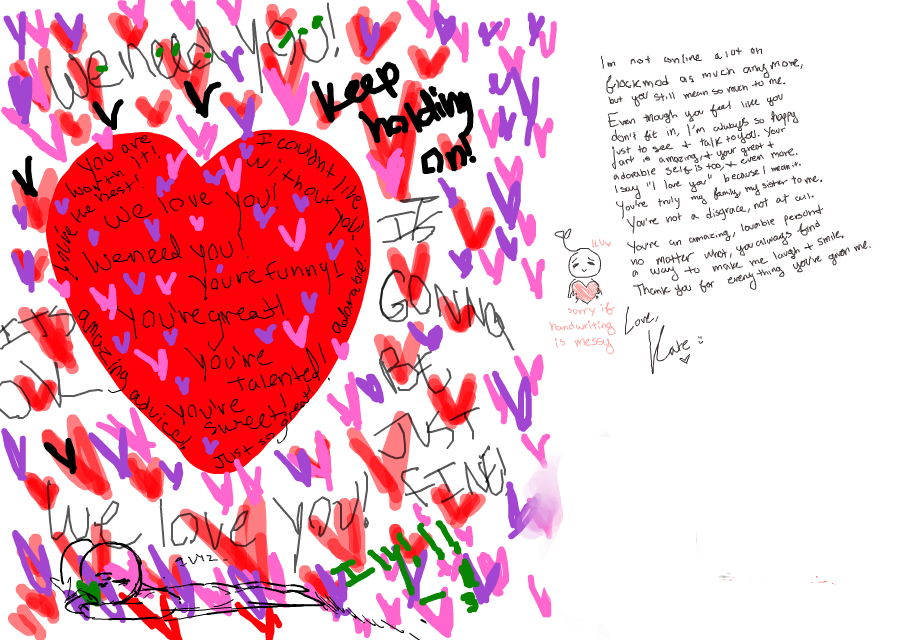 We need you!
Keep
holding
on!
You are
worth it!
You're the best!
I couldn't live
without you!
We love you!
We need you!
You're funny!
You're great!
You're
talented!
You're
sweet!
Just so great!
adorable!
amazing advice!
IS
GONNA
BE
JUST
FINE!
We love you!
ILY!!!
I'm not online a lot on
Glockmod as much anymore,
but you still mean so much to me.
Even though you feel like you
don't fit in, I'm always so happy
just to see + talk to you. Your
art is amazing, + your great +
adorable self is too, + even more.
I say "I love you" because I mean it.
You're truly my family, my sister to me.
You're not a disgrace, not at all.
You're an amazing, lovable person!
no matter what, you always find
a way to make me laugh + smile.
Thank you for everything you've given me.
Love,
Kate :)
sorry if
handwriting
is messy